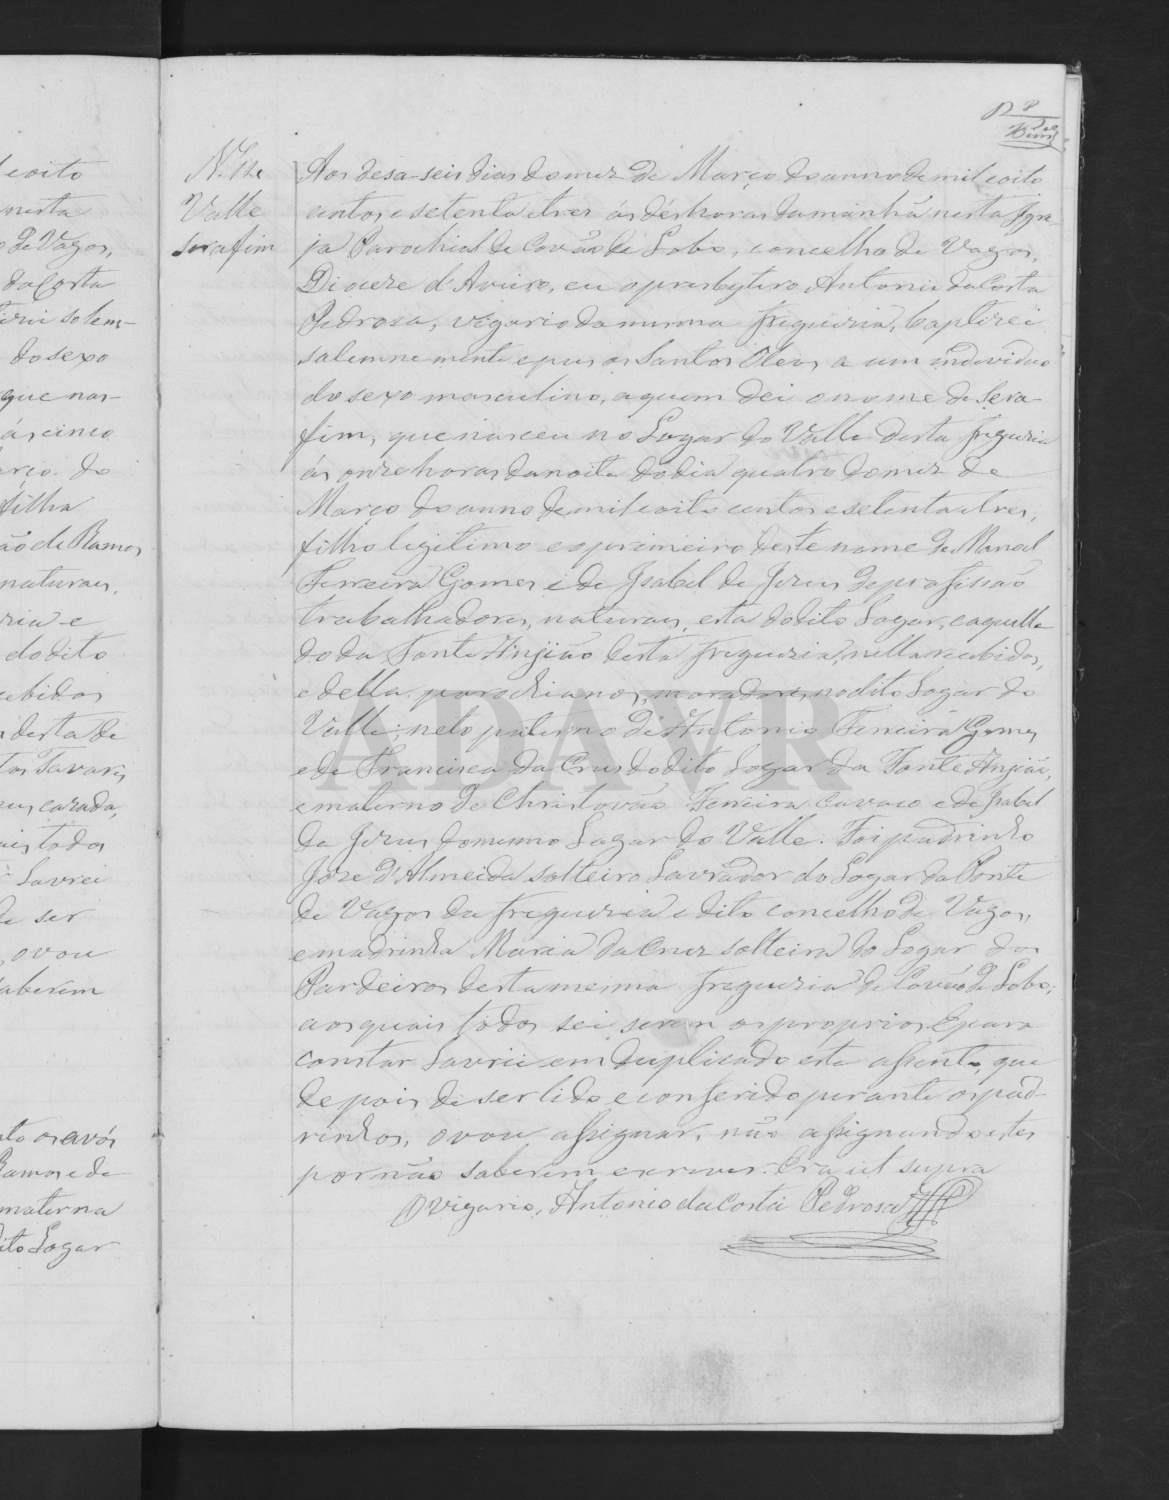 Valle
Serafim
Aos desa-seis dias do mez de Março do anno de mil eoito
centos e setenta e tres ás dés horas da manhã nesta Igre-
ja Parochial de Covão de Lobo, concelho de Vagos,
Diocese d'Aveiro, eu o presbytero Antonio da Costa
Pedrosa, vigario da mesma freguesia, baptisei
solemnemente e pus os Santos Oleos a um individuo
do sexo masculino, a quem dei o nome de Sera-
fim, que nasceu no Logar do Valle desta freguesia
ás onze horas da noite do dia quatro do mez de
Março do anno de mil eoito centos e setenta e tres,
filho legitimo e o primeiro deste nome de Manoel
Ferreira Gomes e de Isabel de Jesus de profissão
trabalhadores, naturaes, esta do dito Logar, e aquelle
do da Fonte Angião desta freguesia, nella recebidos,
e della parochianos, moradores no dito Logar do
Valle; neto paterno de Antonio Ferreira Gomes
e de Francisca da Crus do dito Logar da Fonte Angião,
e materno de Christovão Ferreira Cavaco e de Isabel
de Jesus do mesmo Logar do Valle. Foi padrinho
José d'Almeida solteiro Lavrador do Logar da Ponte
de Vagos da freguesia e dito concelho de Vagos,
e madrinha Maria da Cruz solteira do Logar dos
Pardeiros desta mesma freguesia de Covão de Lobo;
aos quais todos sei serem os proprios. E para
constar Lavrei em duplicado este assento, que
depois de ser lido e conferido perante os pad-
rinhos, o vou assignar, não assignando estes
por não saberem escrever. Era ut supra
O vigario, Antonio da Costa Pedrosa
eoito
nesta
de Vagos,
da Costa
solem-
do sexo
que nas-
ás cinco
do
filha
de Ramos
naturaes,
e
do dito
desta de
Tavares
casada,
todos
Lavrei
de ser
o vou
saberem
os avós
Ramos e de
materna
dito Logar
ADAVR